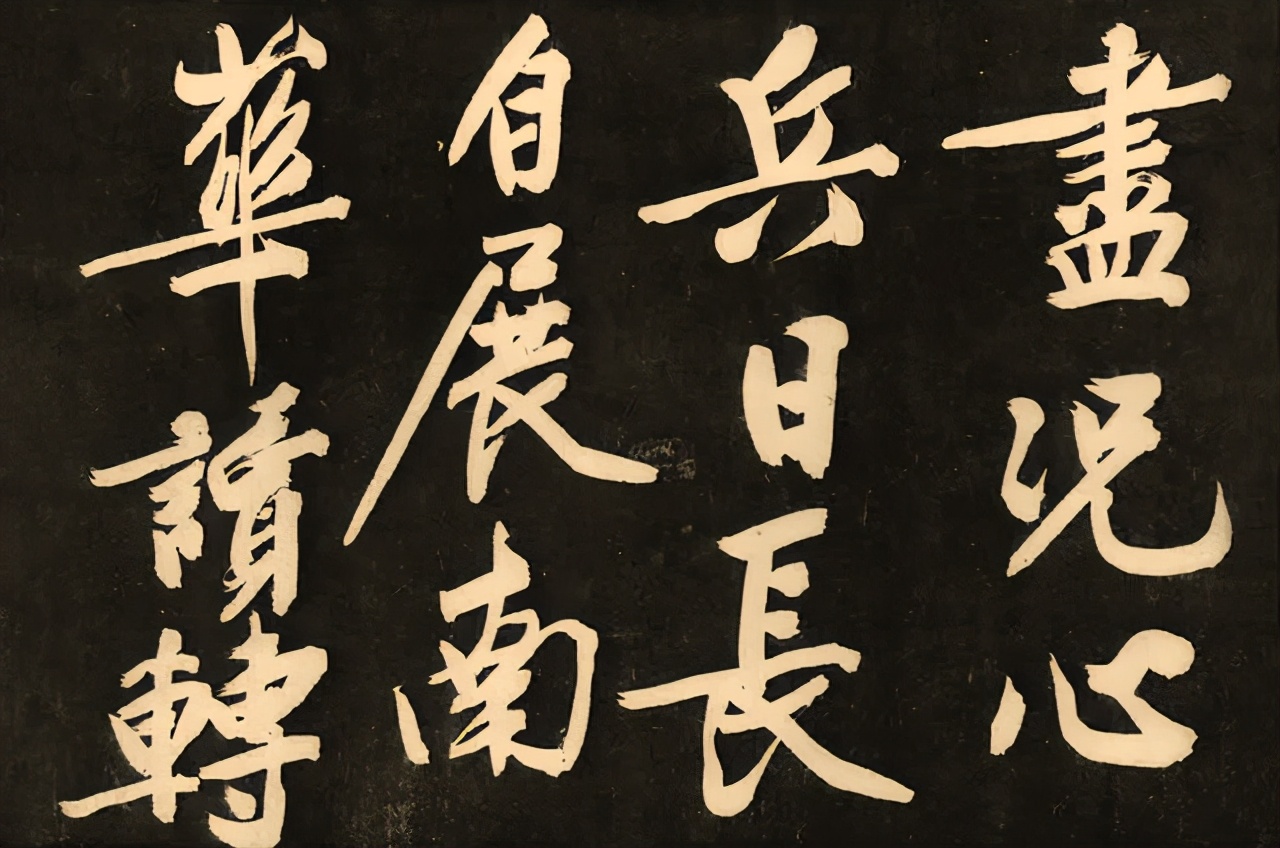 盡況心
兵日長
自展南
華讀轉